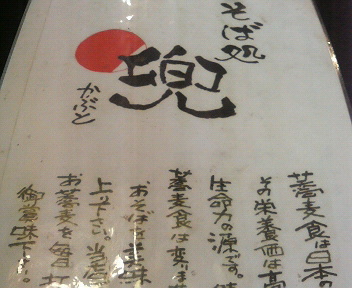 そば処
兜
かぶと
蕎麦食は日本の
その栄養価は高
生命力の源です。
蕎麦食は変
おそば
上下さい。当店
お蕎麦を
御賞味下さ